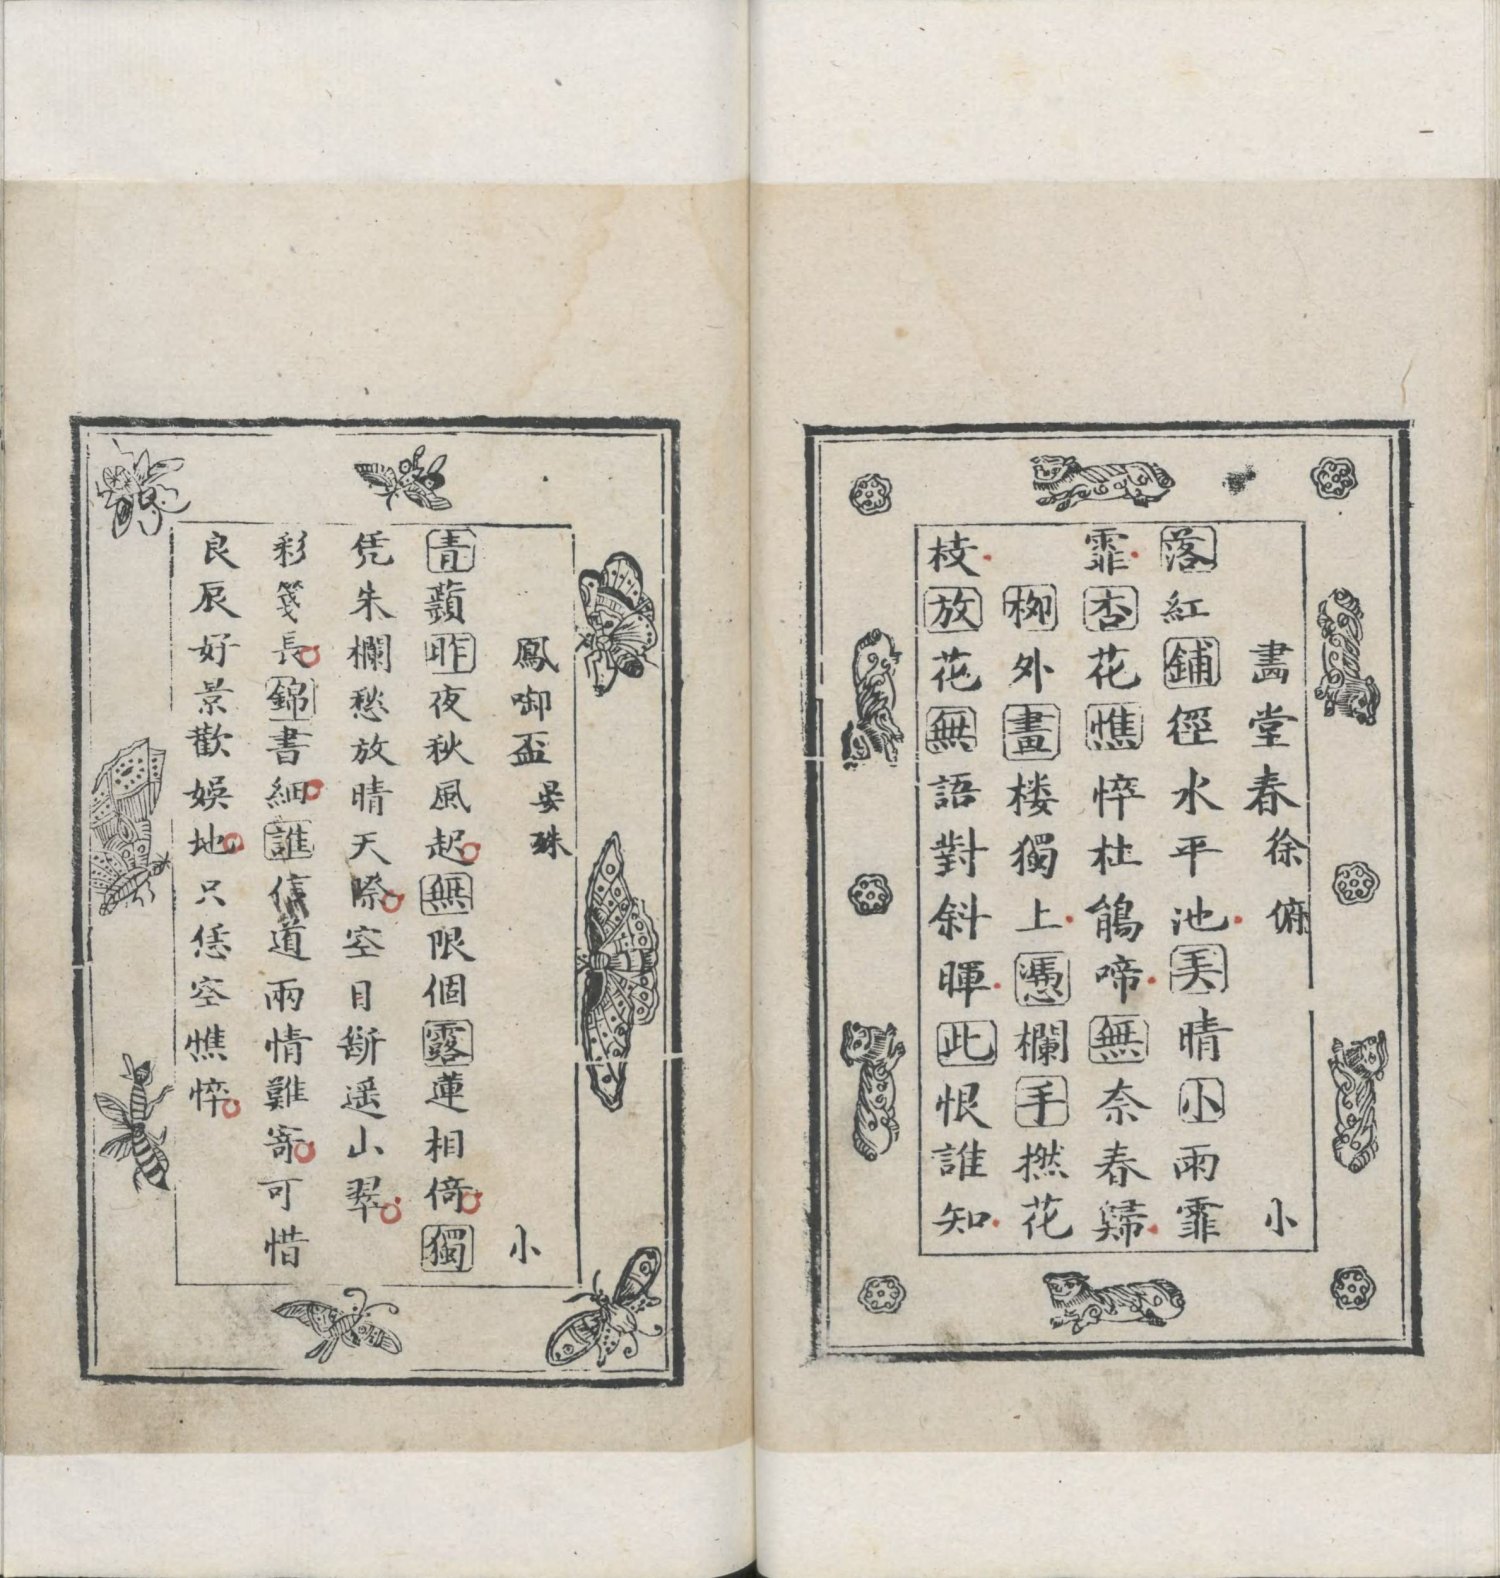 畵堂春徐俯 小
落紅鋪徑水平池美晴小雨霏
霏杏花憔悴杜鵑啼無奈春歸
栁外畫楼獨上憑欄手撚花
枝放花無語對斜暉此恨誰知
鳳啣盃晏殊 小
青蘋昨夜秋風起無限個露蓮相倚獨
凭朱欄愁放晴天際空目断遥山翠
彩箋長錦書細誰信道兩情難寄可惜
良辰好景歡娛地只恁空憔悴